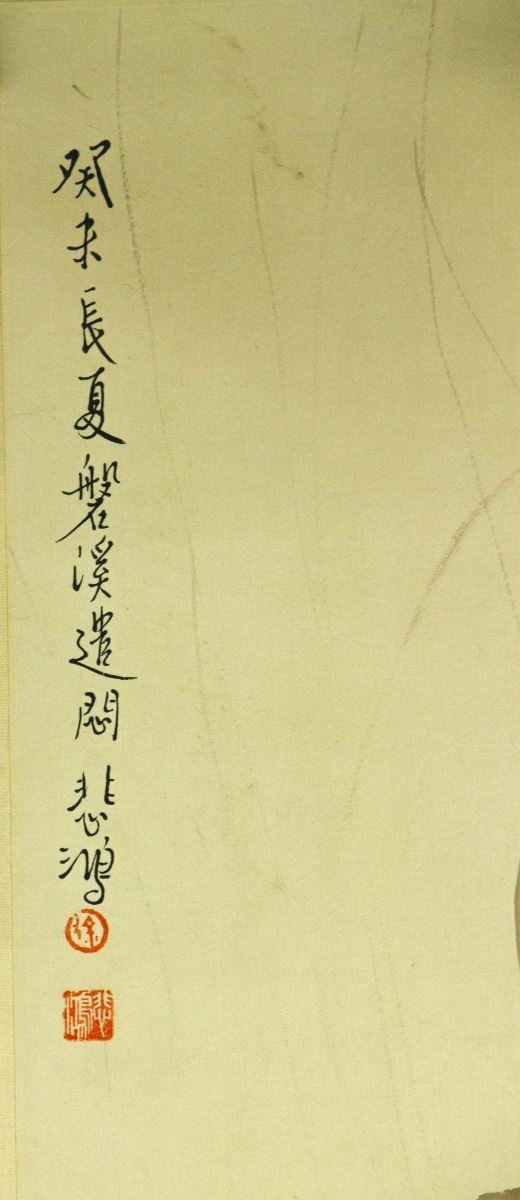 癸未長夏磐溪遣悶 悲鴻
徐
悲鴻